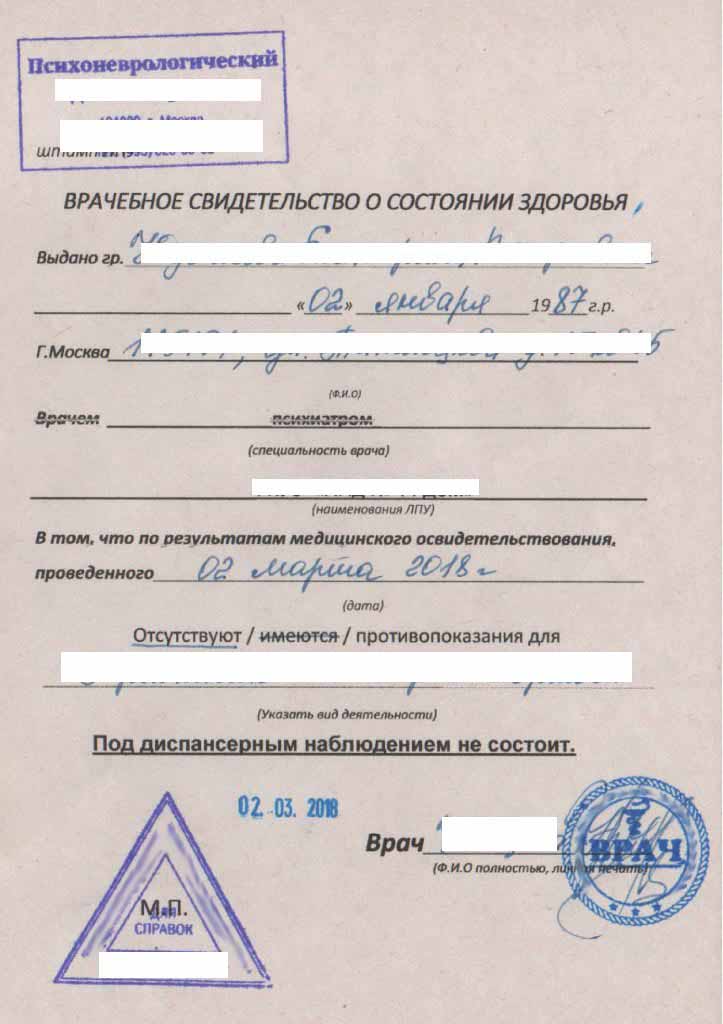 Психоневрологический
ВРАЧЕБНОЕ СВИДЕТЕЛЬСТВО О СОСТОЯНИИ ЗДОРОВЬЯ
Выдано гр.
«02» января 1987 г.р.
Г.Москва
(Ф.И.О)
Врачем психиатром
(специальность врача)
(наименования ЛПУ)
В том, что по результатам медицинского освидетельствования,
проведенного 02 марта 2018 г
(дата)
Отсутствуют / имеются / противопоказания для
(Указать вид деятельности)
Под диспансерным наблюдением не состоит.
02. 03. 2018
Врач
ВРАЧ
(Ф.И.О полностью, личная печать)
М.П.
ДЛЯ
СПРАВОК